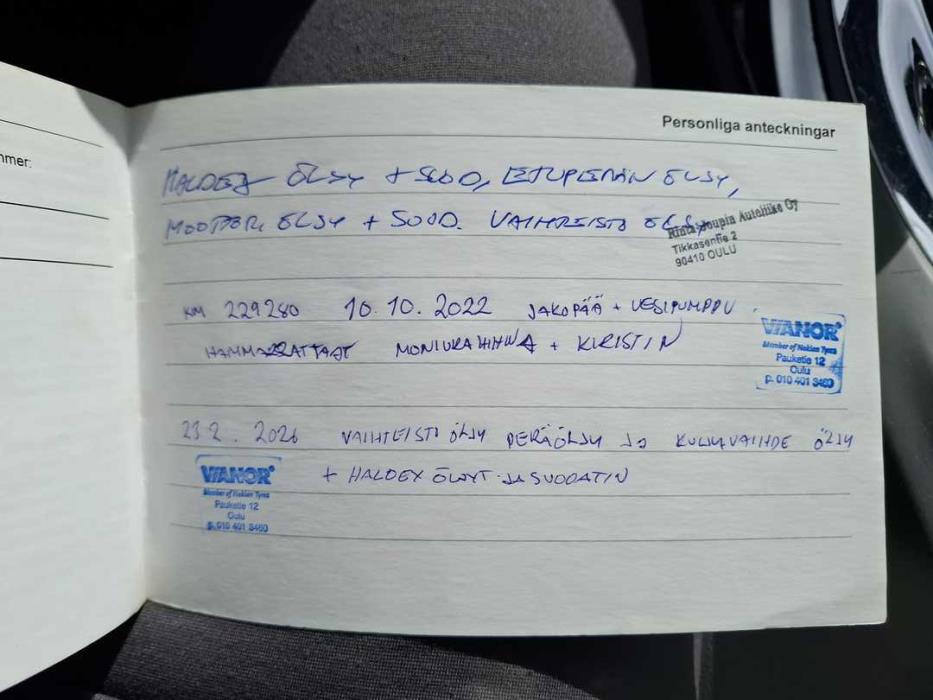 mmer:
Personliga anteckningar
HALDEX ÖLJY + SUOD, ETUPERÄN ÖLJY,
MOOTTORI ÖLJY + SUOD. VAIHTEISTO ÖLJY
Rinta-Joupin Autoliike Oy
Tikkasentie 2
90410 OULU
KM 229280 10.10.2022 JAKOPÄÄ + VESIPUMPPU
HAMMASRATTAAT MONIURAHIHNA + KIRISTIN
VIANOR
Member of Nokian Tyres
Pauketie 12
Oulu
p. 010 401 3460
23.2.2026 VAIHTEISTO ÖLJY PERÄÖLJY JA KULMAVAIHDE ÖLJY
+ HALDEX ÖLJYT JA SUODATIN
VIANOR
Member of Nokian Tyres
Pauketie 12
Oulu
p. 010 401 3460